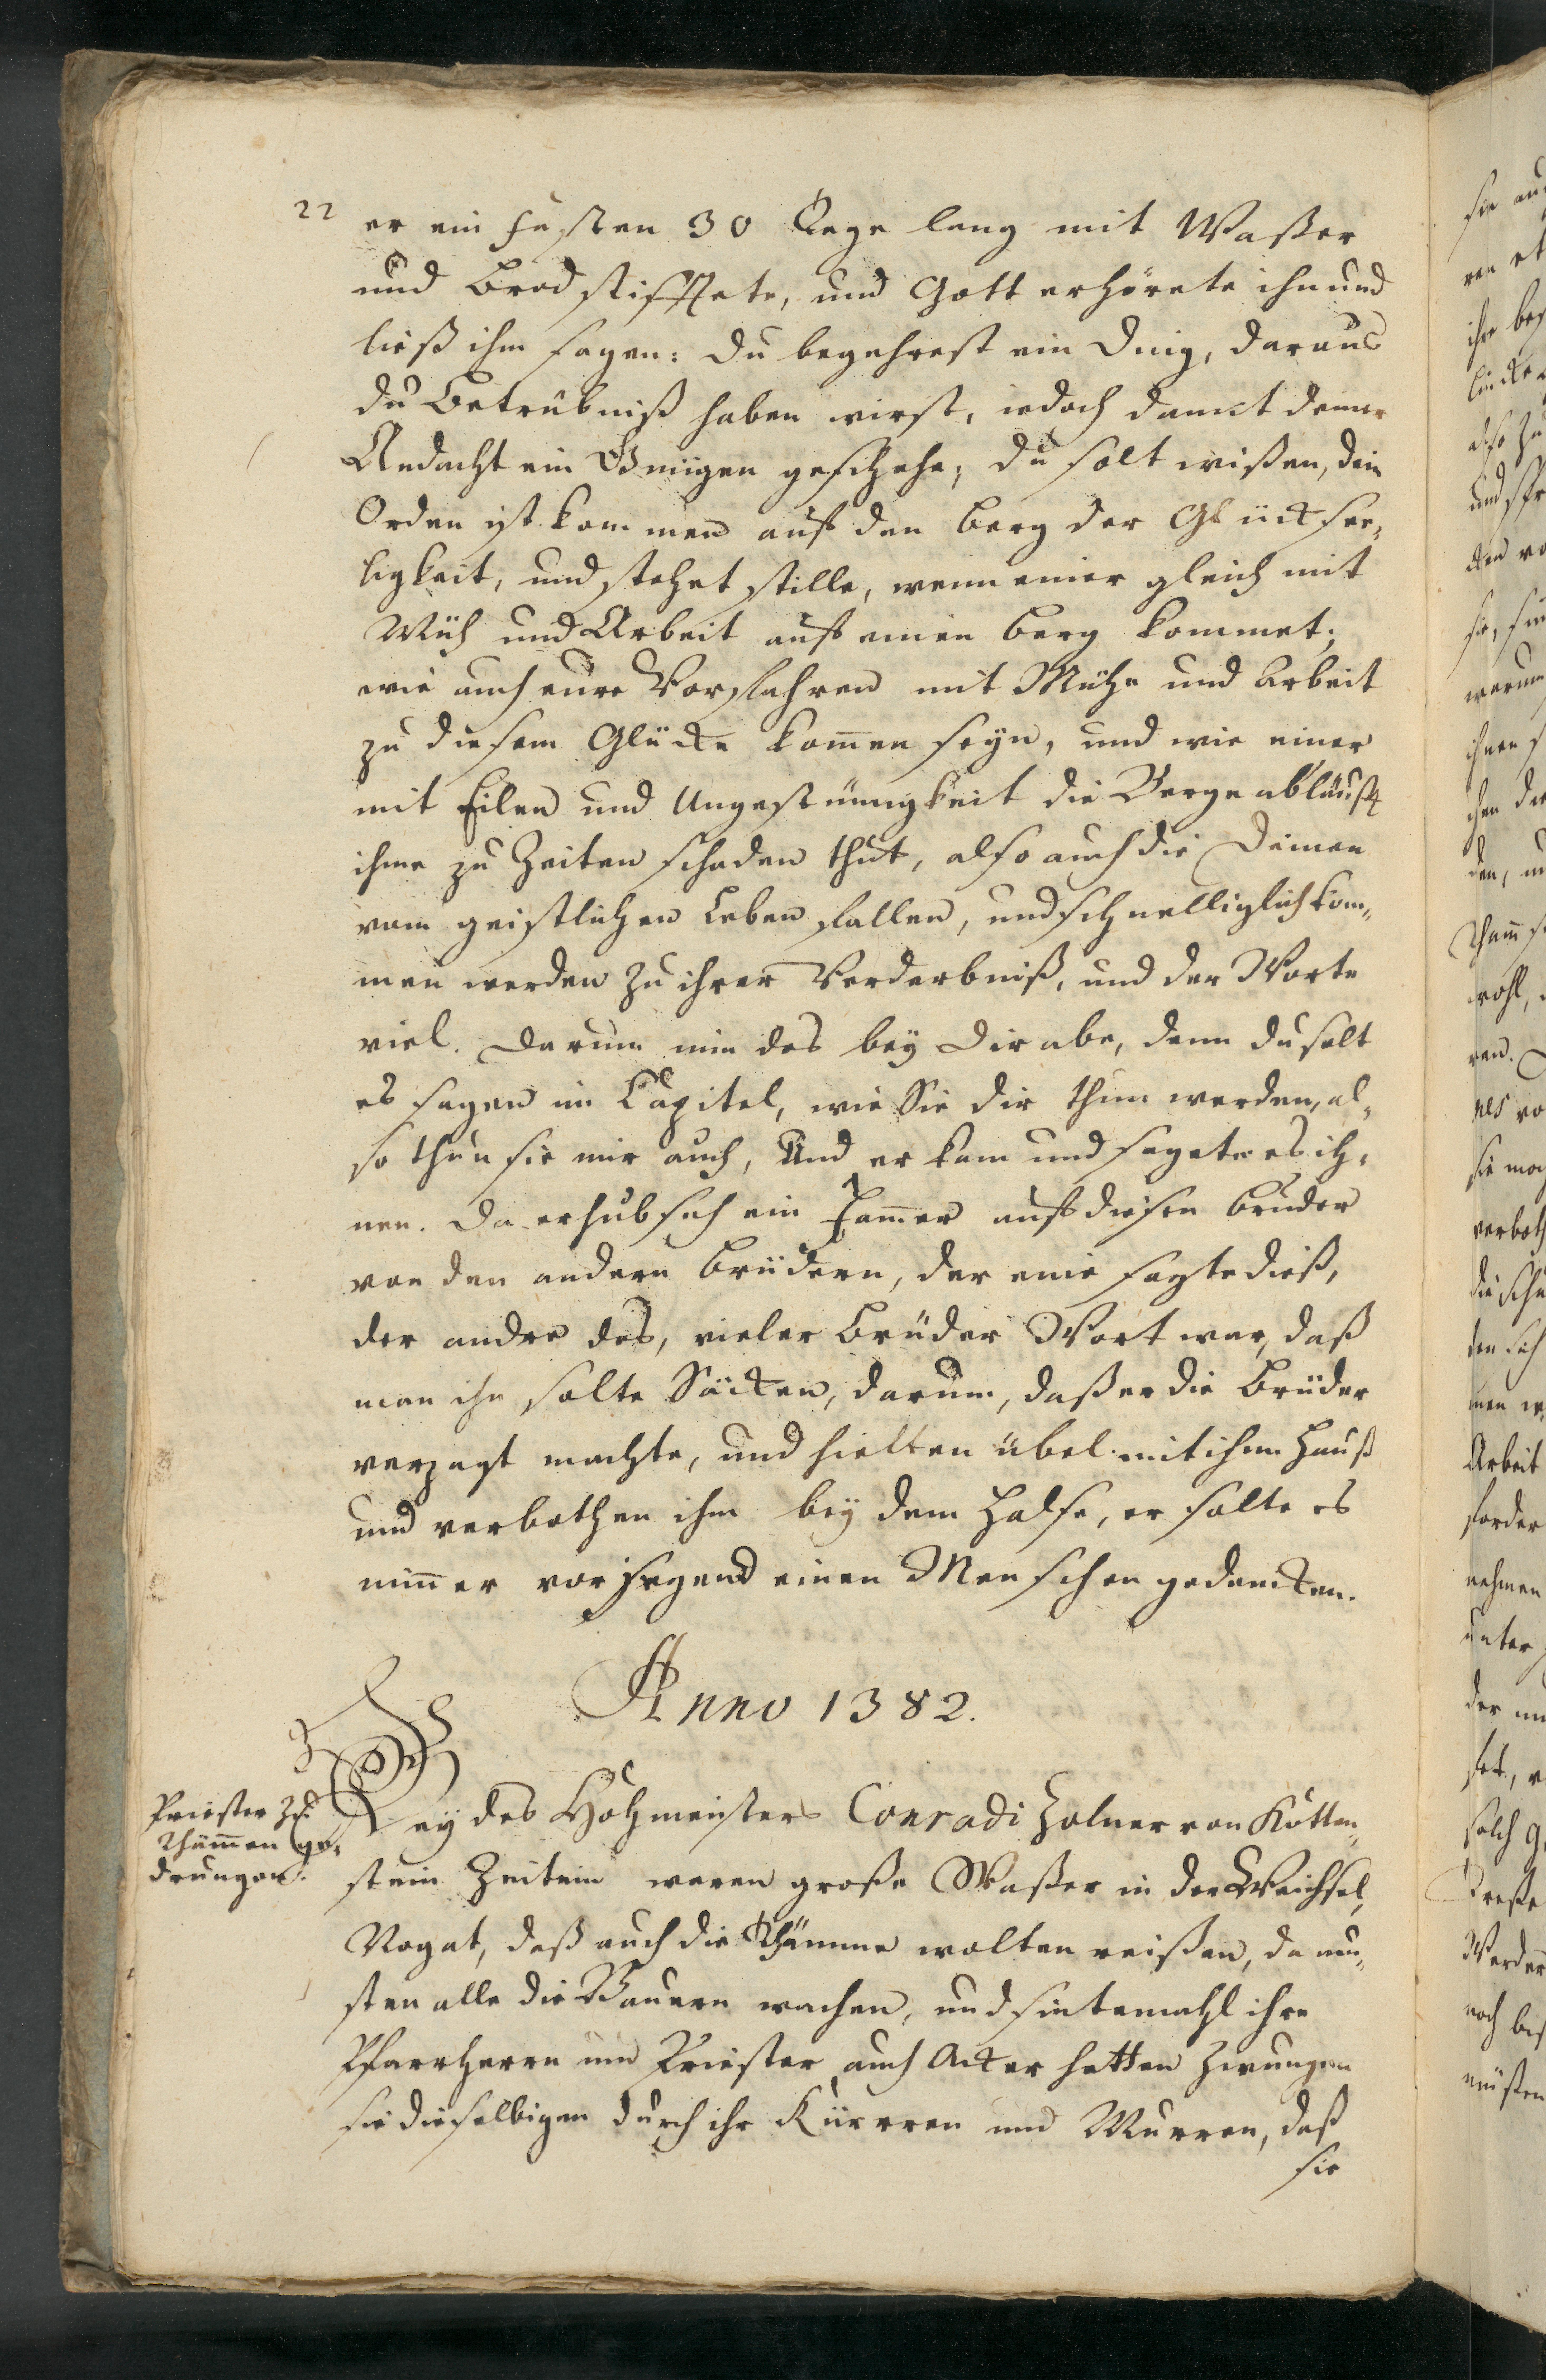 22
er ein fasten 30 Tage lang mit Waßer
und Brod stifftete, und Gott erhörete ihn und
ließ ihm sagen: du begehrest ein Ding, daraus
du Betrübniß haben wirst, iedoch damit deiner
Andacht ein Gnügen geschehe, du solt wißen, dein
Orden ist kommen auf den Berg der Glücksee„
ligkeit, und stehet stille, wenn einer gleich mit
Müh und Arbeit auf einen Berg kommet;
wie auch eure Vorfahren mit Mühe und Arbeit
zu diesem Glücke kom̄en seyn, und wie einer
mit Eilen und Ungestümigkeit die Berge abläufft
ihme zu Zeiten schaden thut, also auch die Deinen
vom geistlichen Leben fallen, und schnelliglich kom„
men werden zu ihrer Verderbniß, und der Worte
viel. Darum nim das bey Dir abe, denn du solt
es sagen im Capitel, wie Sie dir thun werden, al„
so thun sie mir auch, Und er kam und sagete es ih„
nen. Da erhub sich ein Jam̄er auf diesen Bruder
von den andern Brüdern, der eine sagte dieß,
der andre das, vieler Brüder Wort war, daß
man ihn solte Säcken, darum, daß er die Brüder
verzagt machte, und hielten übel mit ihm Hauß
und verbothen ihm bey dem Halse, er solte es
nim̄er vor irgend einen Menschen gedencken.
Anno 1382.
Priester zu
Thäm̄en ge„
drungen.
Bey des Hohmeisters Conradi Zolner von Rotten„
stein Zeiten waren große Waßer in der Weichsel,
Nogat, daß auch die Thämme wolten reißen, da mu„
sten alle die Bauern wachen, und sintemahl ihre
Pfarrherrn und Priester auch Acker hatten zwungen
sie dieselbigen durch ihr Kürren und Murren, daß
sie